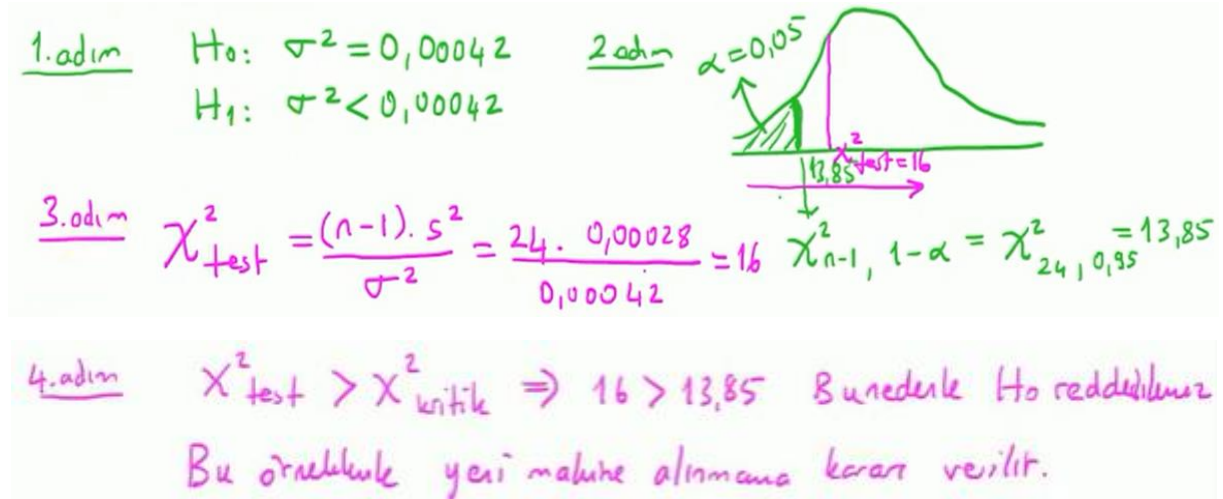 1.adım H₀: σ² = 0,00042 2 adım α = 0,05
H₁: σ² < 0,00042
χ²test = 16
13,85
3.adım χ²test = (n-1). s² / σ² = 24. 0,00028 / 0,00042 = 16 χ²n-1, 1-α = χ²24, 0,95 = 13,85
4.adım χ²test > χ²kritik ⇒ 16 > 13,85 Bu nedenle Ho reddedilemez
Bu örneklemle yeni makine alınmama kararı verilir.